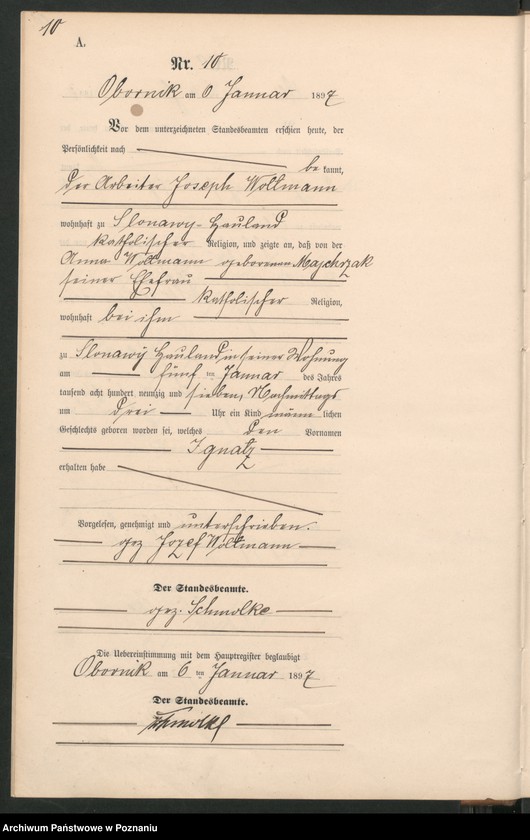 10
A.
Nr. 10
Obornik am 6 Januar 1897
Vor dem unterzeichneten Standesbeamten erschien heute, der
Persönlichkeit nach
be kannt,
der Arbeiter Joseph Wollmann
wohnhaft zu Slonawy-Hauland
katholischer Religion, und zeigte an, daß von der
Anna Wollmann geborenen Majchrzak
seiner Ehefrau
katholischer Religion,
wohnhaft bei ihm
zu Slonawy Hauland in seiner Wohnung
am fünf ten Januar des Jahres
tausend acht hundert neunzig und sieben, Nachmittags
um drei Uhr ein Kind männ lichen
Geschlechts geboren worden sei, welches den Vornamen
Ignatz
erhalten habe
Vorgelesen, genehmigt und unterschrieben.
gez Jozef Wollmann
Der Standesbeamte.
gez. Schmolke
Die Uebereinstimmung mit dem Hauptregister beglaubigt
Obornik am 6 ten Januar 1897
Der Standesbeamte.
Schmolke
Archiwum Państwowe w Poznaniu